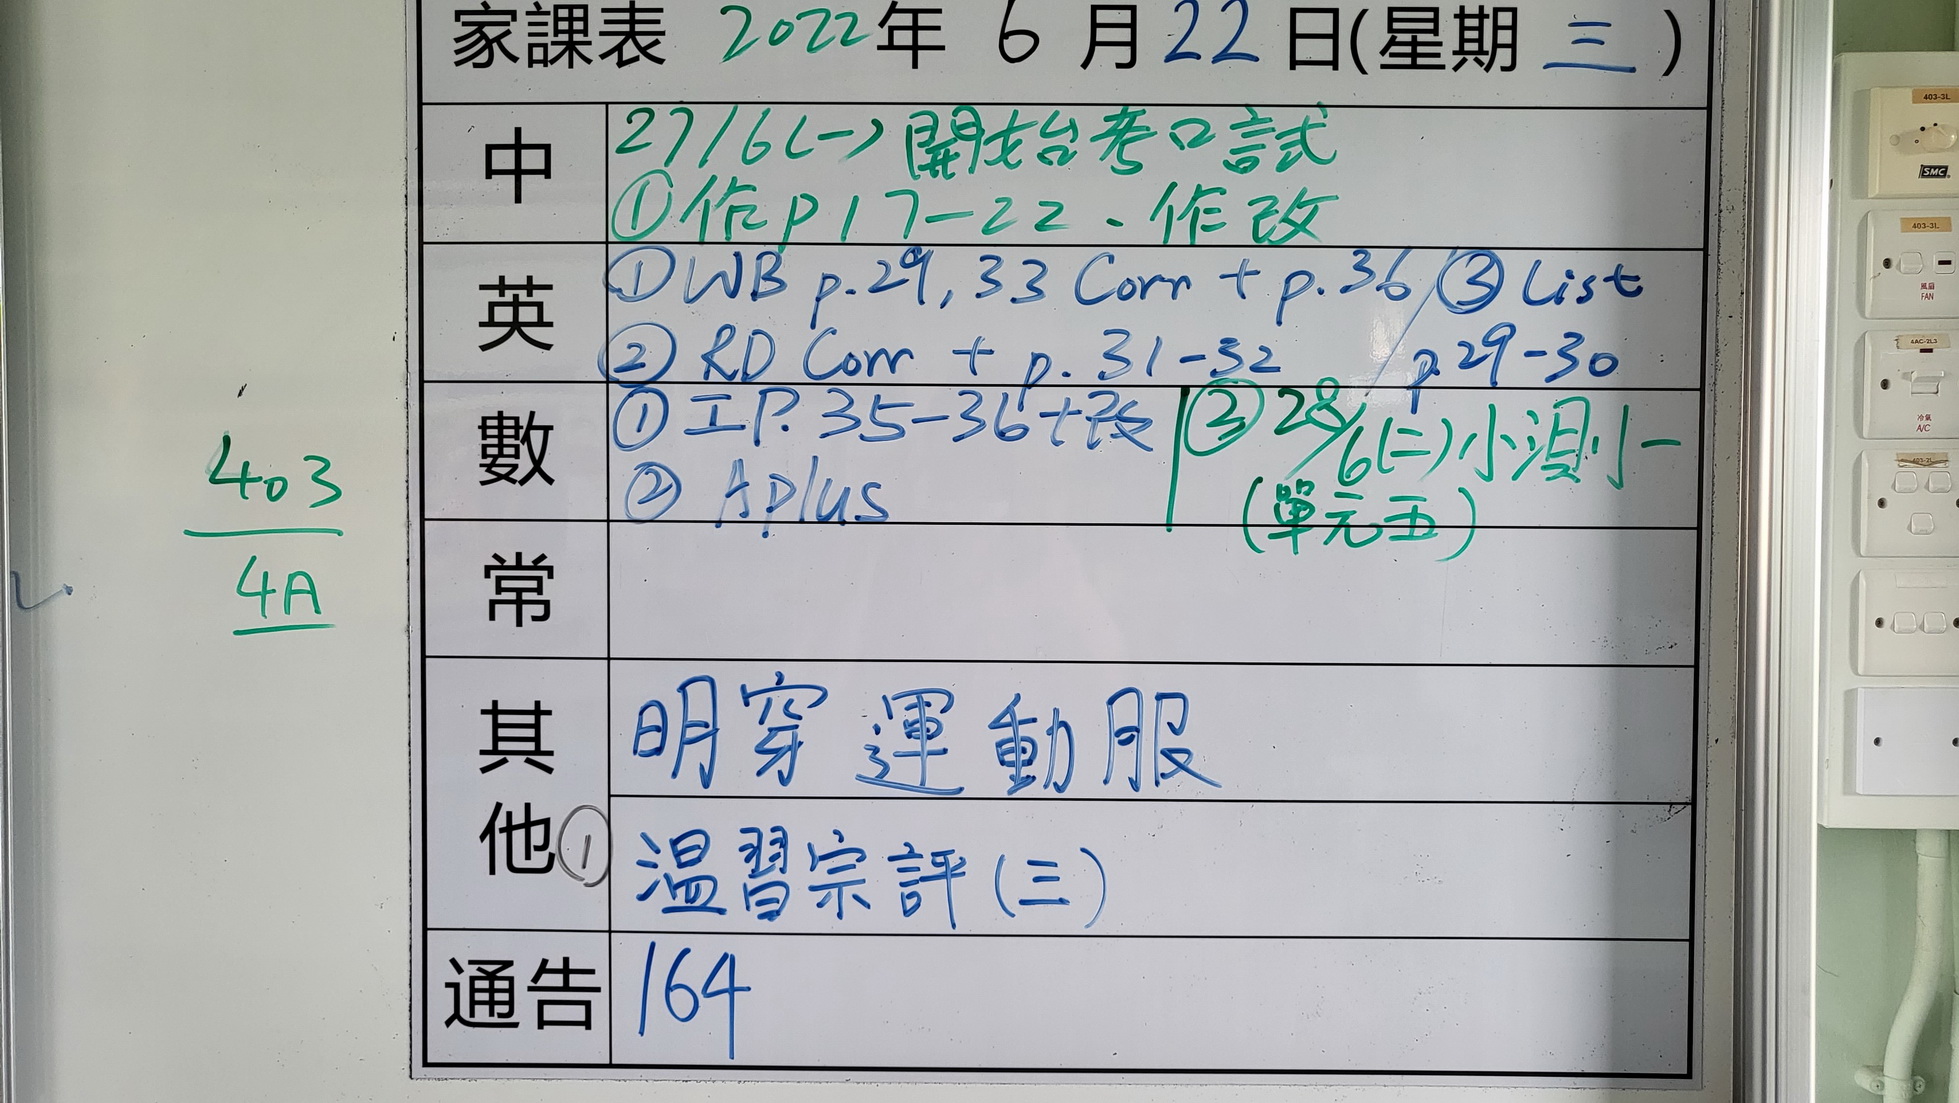 家課表 2022年 6 月 22 日(星期 三 )
中
27/6(一)開始考口試
①作p17-22、作改
英
①WB p.29, 33 Corr + p.36 / ③ List
② RD Corr + p. 31-32 / p.29-30
數
①工P. 35-36+改
② Aplus
③ 28/6(二)小測一
(單元五)
常
403
4A
其他
明穿運動服
① 溫習宗評(三)
通告
164
403-3L
SMC
403-3L
風扇
FAN
4AC-2L3
冷氣
A/C
403-2L